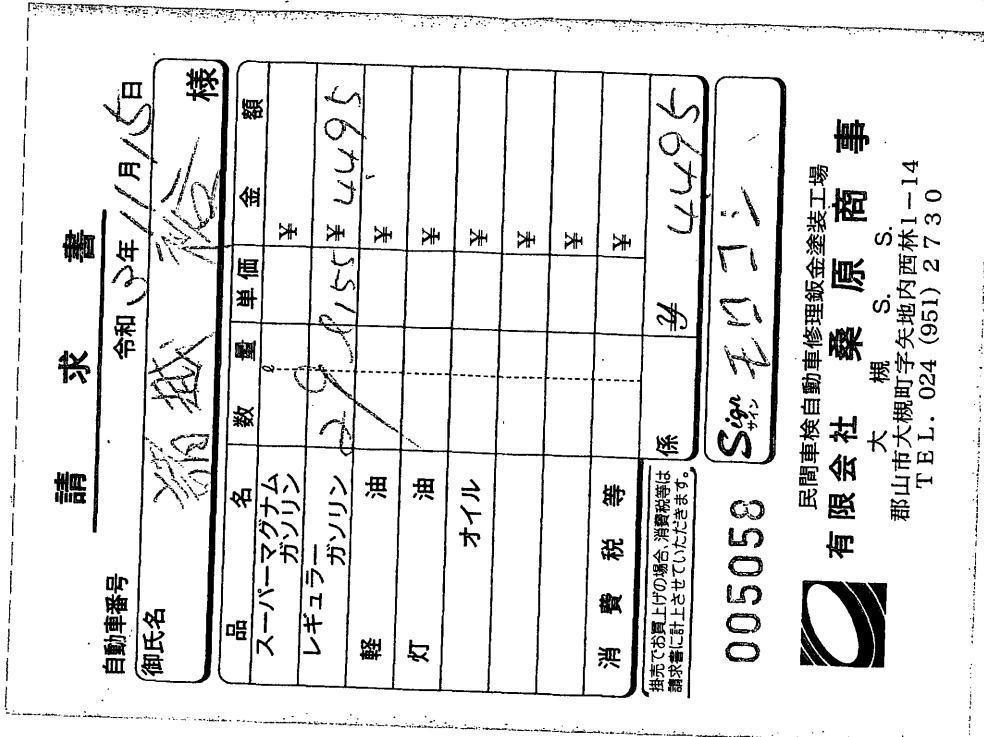 請求書
自動車番号 令和3年11月15日
御氏名 様
品名 数量 単価 金額
スーパーマグナムガソリン ℓ ¥
レギュラーガソリン 29ℓ 155 ¥4495
軽油 ¥
灯油 ¥
オイル ¥
¥
¥
消費税等 ¥
掛売でお買上げの場合、消費税等は
請求書に計上させていただきます。
係 ¥ 4495
005058
Sign サイン モロコシ
民間車検自動車修理鈑金塗装工場
有限会社 桑原商事
大槻 S.S.
郡山市大槻町字矢地内西林1-14
TEL. 024 (951) 2730